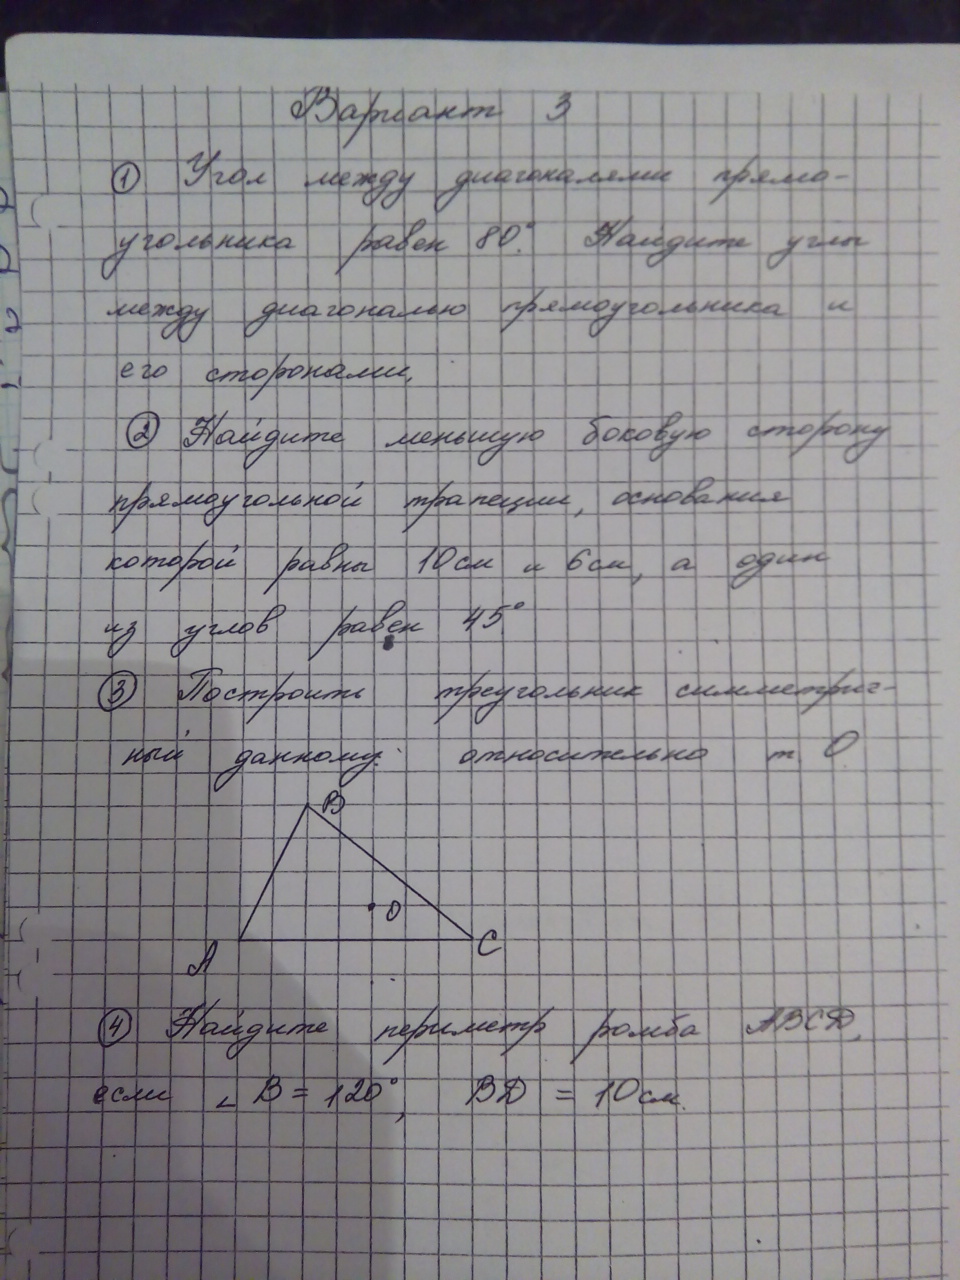 Вариант 3
① Угол между диагоналями прямо-
угольника равен 80°. Найдите углы
между диагональю прямоугольника и
его сторонами.
② Найдите меньшую боковую сторону
прямоугольной трапеции, основания
которой равны 10см и 6см, а один
из углов равен 45°
③ Построить треугольник симметрич-
ный данному: относительно т. О
B
O
A
C
④ Найдите периметр ромба ABCD,
если ∠ B = 120°, BD = 10см.